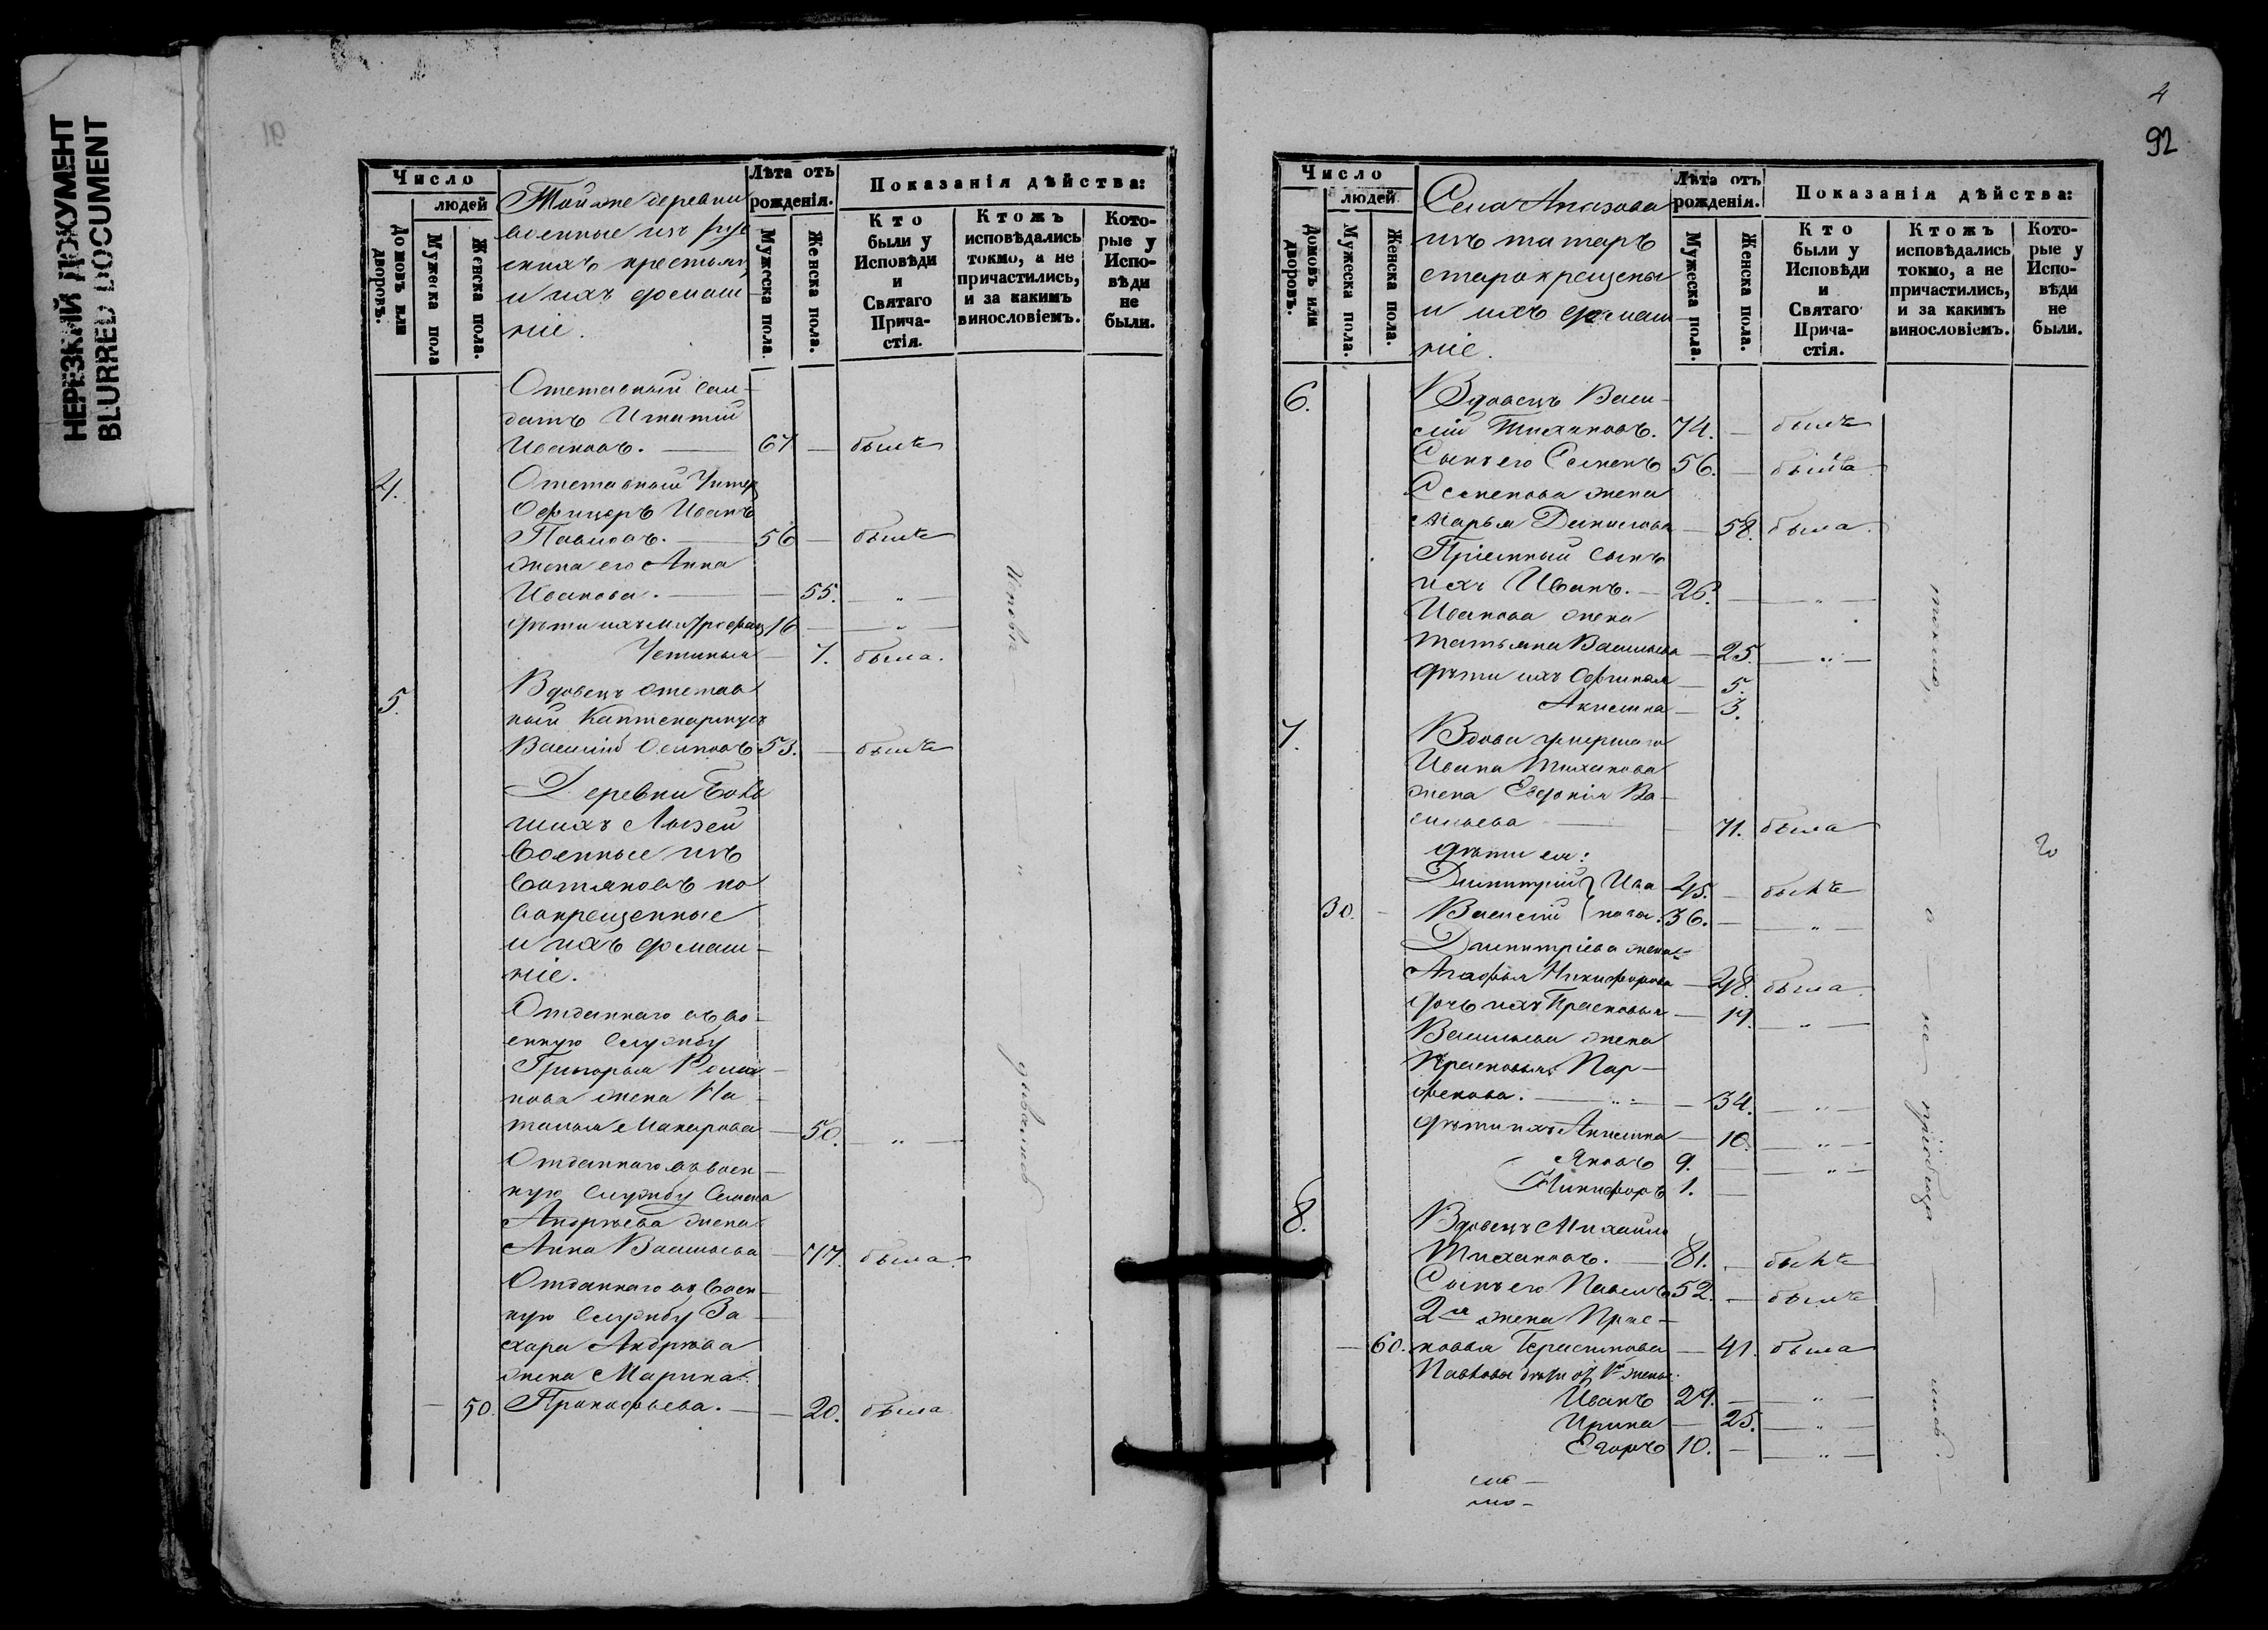 НЕРЕЗКИЙ ДОКУМЕНТ
BLURRED DOCUMENT
91
Число
людей
Домовъ или дворовъ.
Мужеска пола
Женска пола.
Той же деревни
военные изъ рус
скихъ крестьян,
и ихъ домаш
ніе.
Лѣта отъ
рожденія.
Мужеска пола.
Женска пола.
Показанія дѣйства:
Кто
были у
Исповѣди
и
Святаго
Прича-
стія.
Ктожъ
исповѣдались
токмо, а не
причастились,
и за какимъ
винословіемъ.
Кото-
рые у
Испо-
вѣди
не
были.
Отставный сол-
датъ Игнатій
Ивановъ. — 67 — былъ
4. Отставный Унтер
Офицеръ Иванъ
Павловъ. — 56 — былъ
жена его Анна
Иванова. — — 55. — „ —
дѣти ихъ 16 — „ —
Устинья — 7. была.
5. Вдовецъ отстав
ный Каптенармусъ
Василій Осиповъ 53. — былъ
Деревни Боль
шихъ Лызей
военные изъ
вотяковъ но
вокрещенные
и ихъ домаш-
ніе.
Отданнаго въ во-
енную службу
Григорья Рома-
нова жена На-
талья Макарова — 50. — „ —
Отданнаго въ воен-
ную службу Семена
Андреева жена
Анна Васильева — 47. была.
Отданнаго въ воен-
ную службу За-
хара Андреева
жена Марина
— 50. Прокофьева. — — 20. была
4
92
Число
людей
Домовъ или дворовъ.
Мужеска пола.
Женска пола.
Села Апазова
изъ татаръ
старокрещены
и ихъ домаш
ніе.
Лѣта отъ
рожденія.
Мужеска пола.
Женска пола.
Показанія дѣйства:
Кто
были у
Исповѣди
и
Святаго
Прича-
стія.
Ктожъ
исповѣдались
токмо, а не
причастились,
и за какимъ
винословіемъ.
Кото-
рые у
Испо-
вѣди
не
были.
6. Вдовецъ Васи-
лій Тихановъ. 74. — былъ
Сынъ его Семенъ 56. — былъ
Семенова жена
Марья Данилова — 58. была.
Пріемный сынъ
ихъ Иванъ. — 26. — „ —
Иванова жена
Татьяна Васильева — 25. — „ —
дѣти ихъ Офимья — 5.
Акилина — 3.
7. Вдова умершаго
Ивана Тиханова
жена Евдокія Ва-
сильева — — 71. была
дѣти ея:
Димитрій } Ива 45. — былъ
30. — Василій } новы. 36. — „ —
Димитріева жена
Агафья Никифорова — 48. была.
дочь ихъ Прасковья — 14. — „ —
Васильева жена
Прасковья Пар-
фенова. — — 34. — „ —
дѣти ихъ Акилина — 10. — „ —
Яковъ 9. — „ —
Никифоръ 1. —
8. Вдовецъ Михаилъ
Тихановъ. — 81. — былъ
Сынъ его Павелъ 52. — былъ
2я жена Прас-
— 60. ковья Герасимова — 41. была
Павловы дѣти отъ 1й жены:
Иванъ 29. — „ —
Ирина — 25. — „ —
Егоръ 10. — „ —